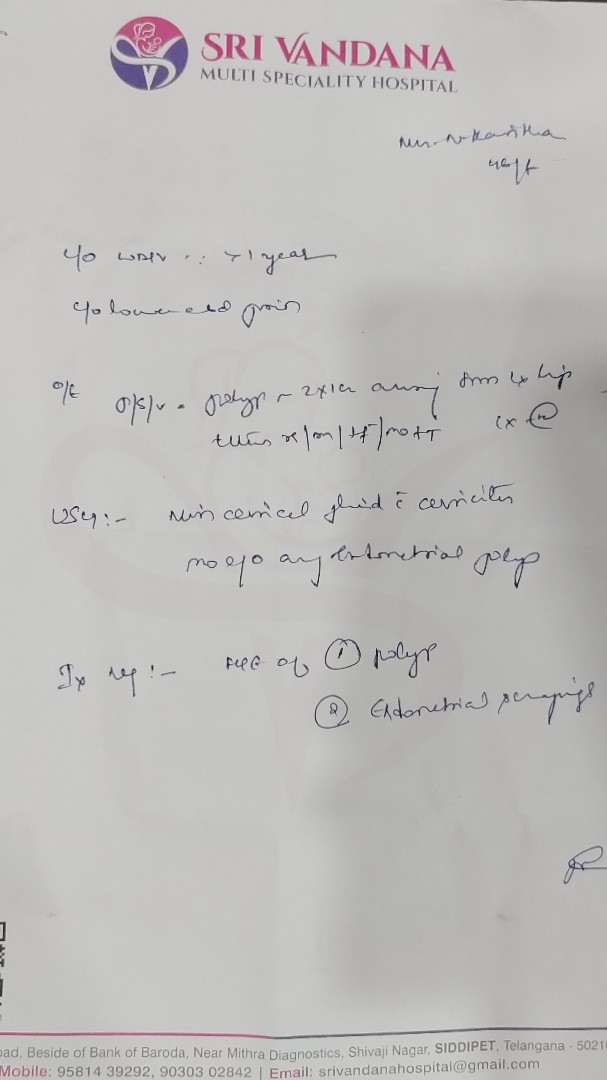 SRI VANDANA
MULTI SPECIALITY HOSPITAL
46/f
c/o WDPV :: >1 year
c/o lower abd pain
O/E P/S/V - polyp ~ 2x1cm arising from Cx lip
uterus /m/ff/no FT Cx (N)
USG:- Min cervical fluid c̄ cervicitis
no e/o any Endometrial polyp
Ix req:- HPE of ① polyp
② Endometrial scrapings
oad, Beside of Bank of Baroda, Near Mithra Diagnostics, Shivaji Nagar, SIDDIPET, Telangana - 5021
Mobile: 95814 39292, 90303 02842 | Email: srivandanahospital@gmail.com